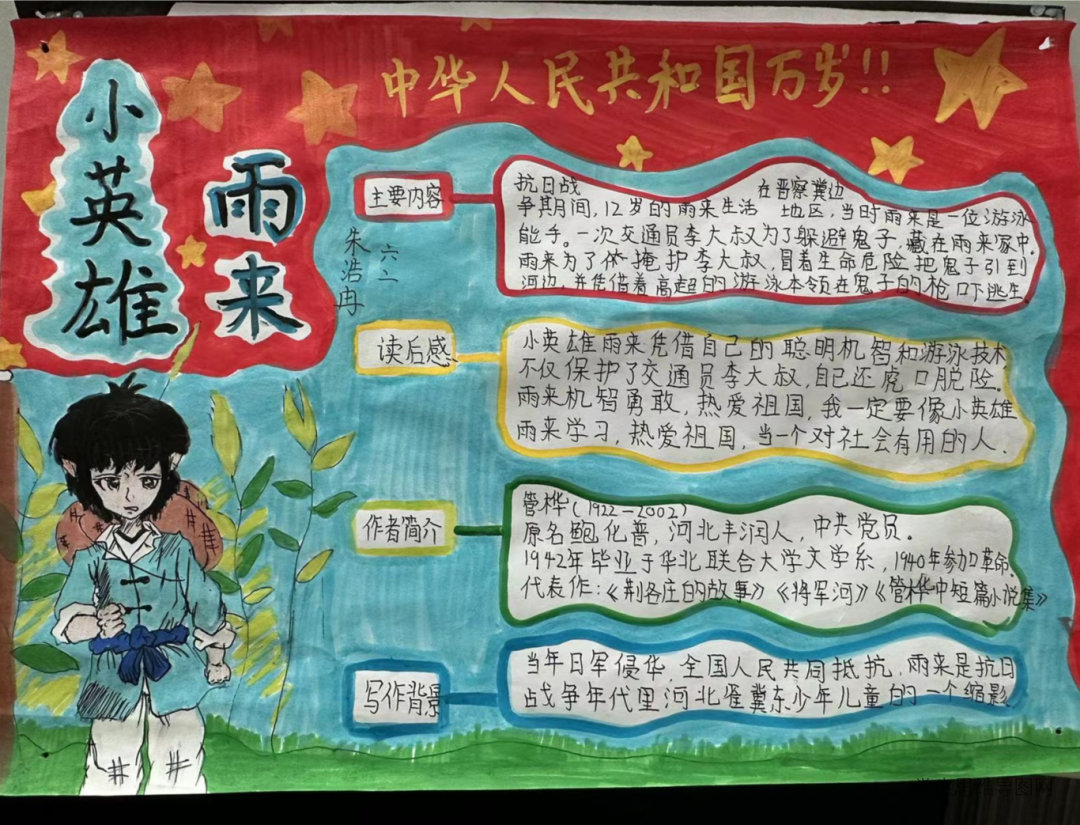 中华人民共和国万岁!!
小英雄
雨来
朱浩冉
六二
主要内容
抗日战 在晋察冀边
争其期间,12岁的雨来生活 地区,当时雨来是一位游泳
能手。一次交通员李大叔为了躲避鬼子,藏在雨来家中.
雨来为了掩护李大叔,冒着生命危险把鬼子引到
河边,并凭借着高超的游泳本领在鬼子的枪口下逃生.
读后感
小英雄雨来凭借自己的聪明机智和游泳技术
不仅保护了交通员李大叔,自己还虎口脱险.
雨来机智勇敢,热爱祖国,我一定要像小英雄
雨来学习,热爱祖国,当一个对社会有用的人.
作者简介
管桦(1922-2002)
原名鲍化普,河北丰润人,中共党员.
1942年毕业于华北联合大学文学系,1940年参加革命.
代表作:《荆各庄的故事》《将军河》《管桦中短篇小说集》
写作背景
当年日军侵华.全国人民共同抵抗.雨来是抗日
战争年代里河北省冀东少年儿童的一个缩影